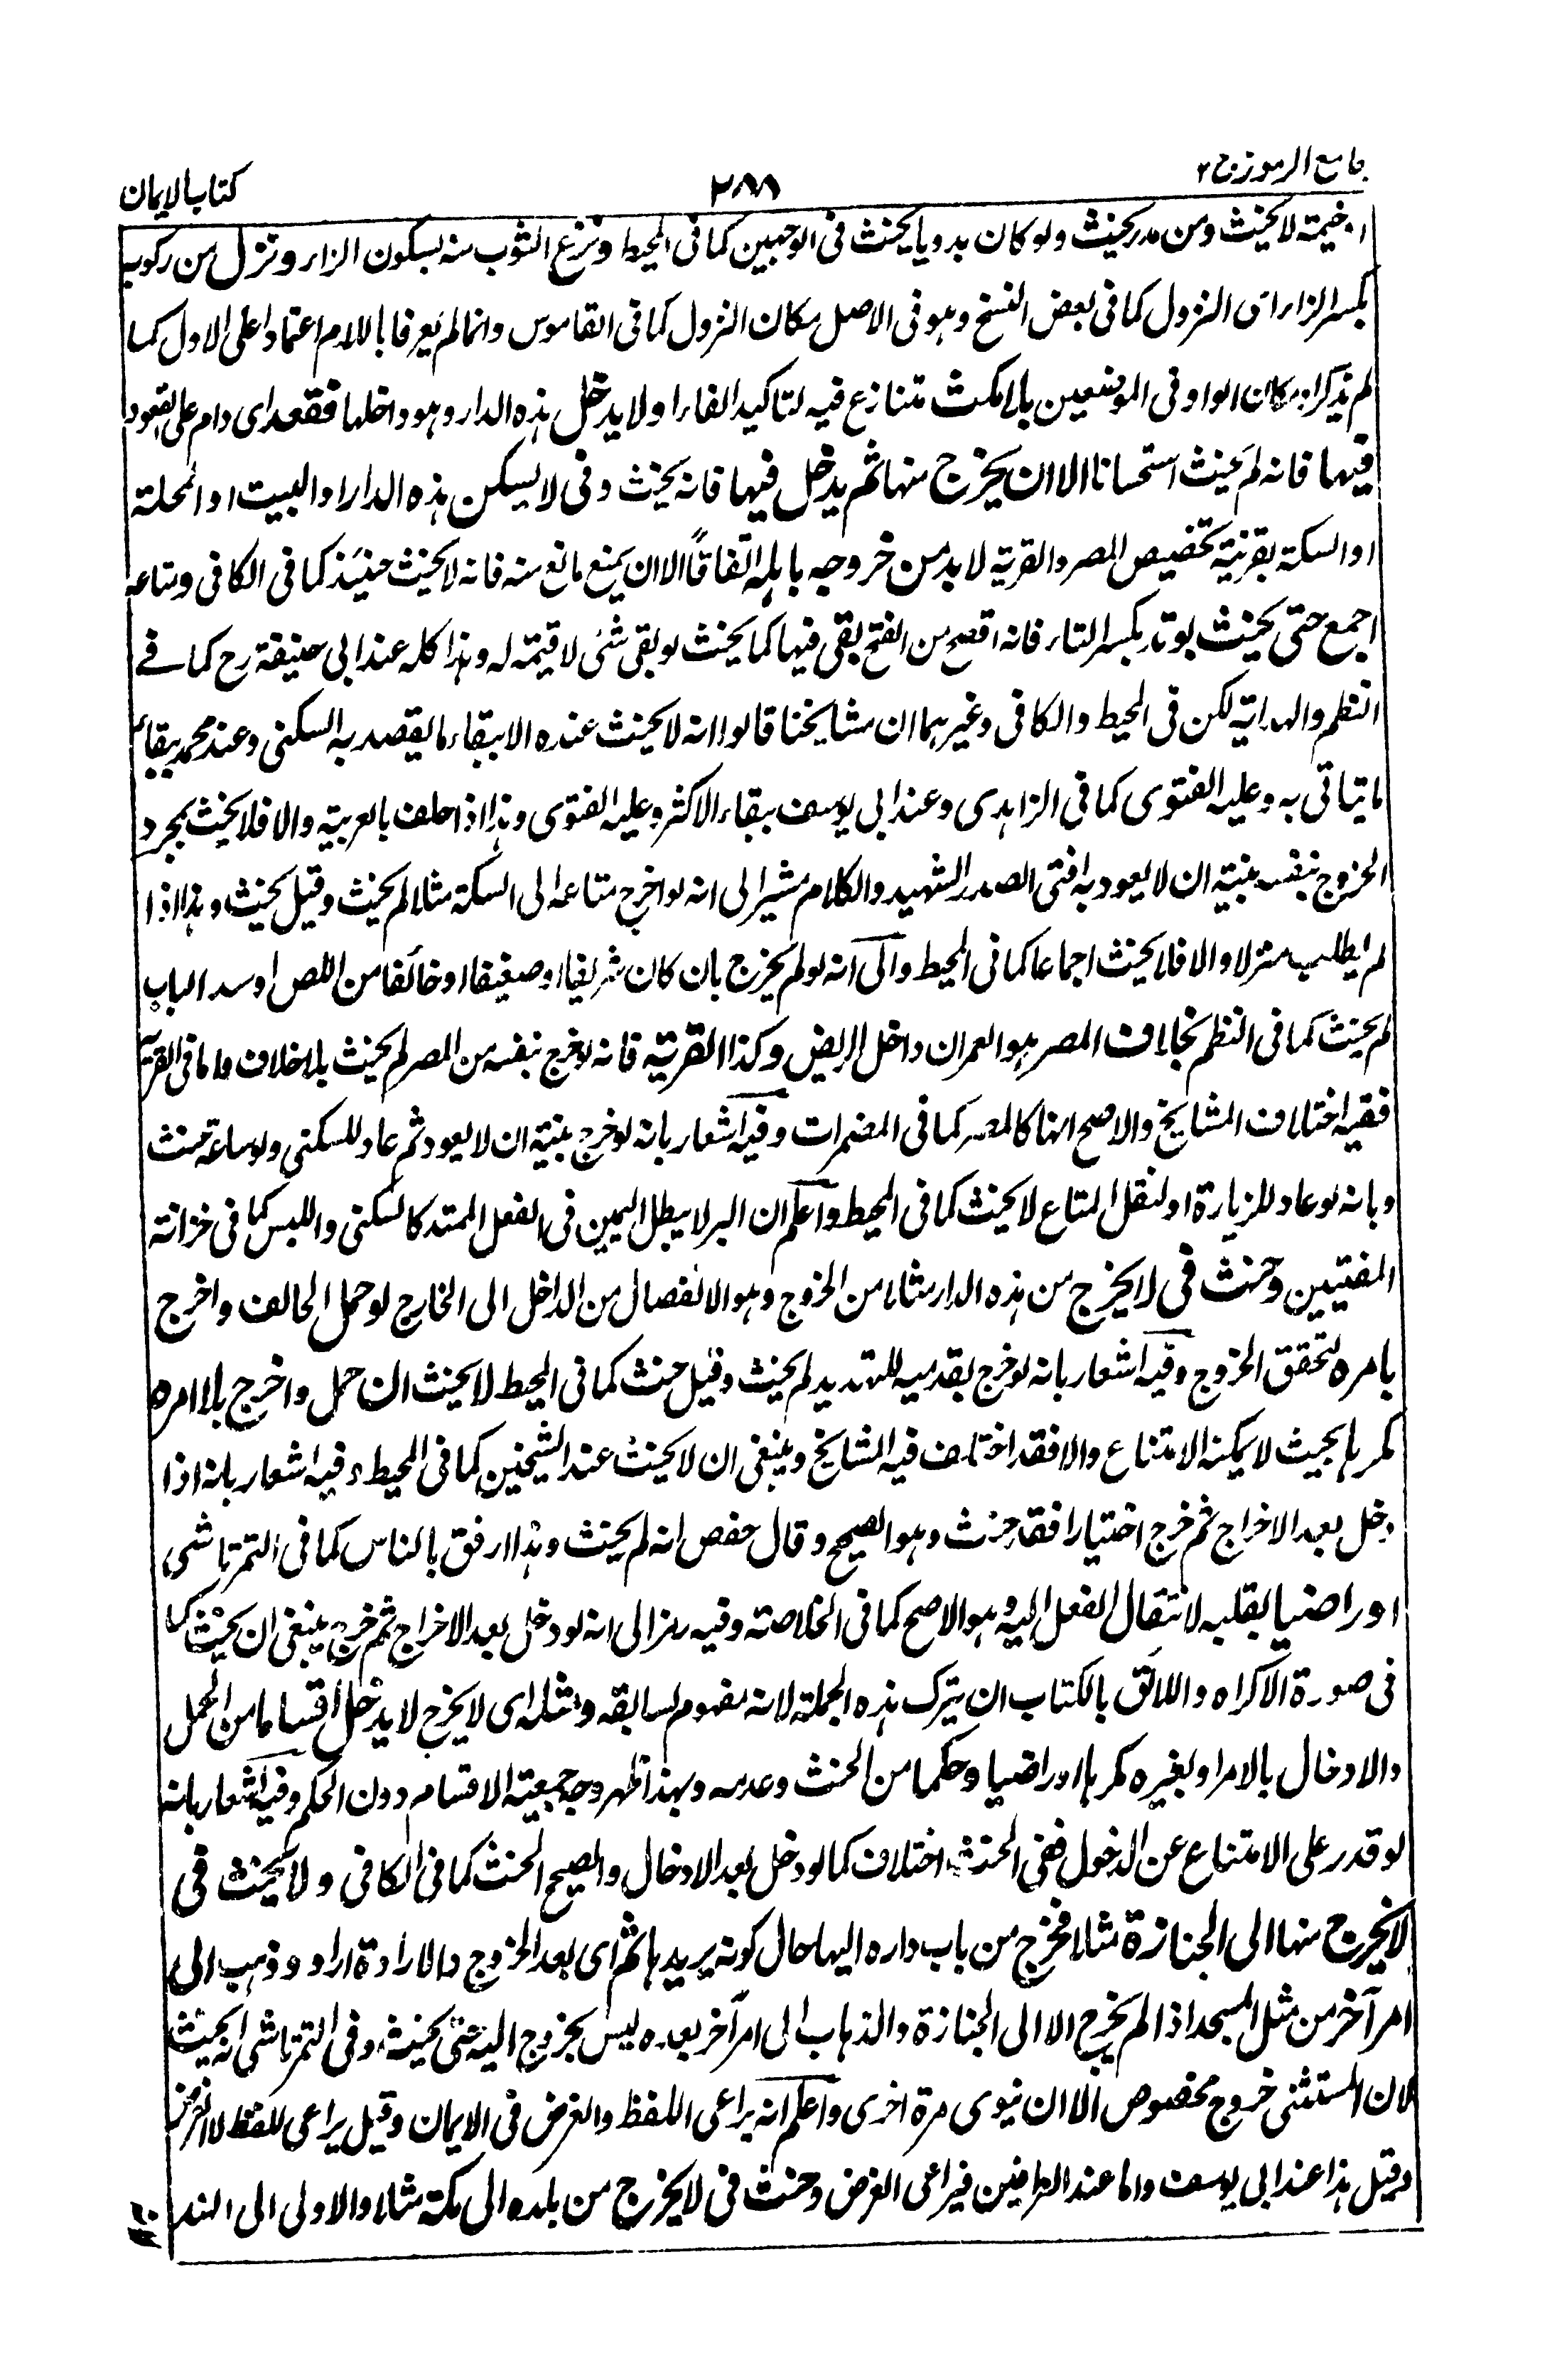 جامع الرموز ج ٢
٢٨٨
كتاب الايمان
اخيمة لا يحنث ومن مدر يحنث ولو كان بدويا يحنث فى الوجهين كما فى المحيط ونزع الثوب منه بسكون الزاء ونزل من ركوب
بكسر الزاء اى النزول كما فى بعض النسخ وهو فى الاصل مكان النزول كما فى القاموس وانما لم يعرفا باللام اعتمادا على الاول كما
لم يذكرا مكان الواو فى الموضعين بلا مكث متنازع فيه لتاكيد الفاء او لا يدخل هذه الدار وهو داخلها فقعد اى دام على القعود
فيها فانه لم يحنث استحسانا الا ان يخرج منها ثم يدخل فيها فانه يحنث وفى لا يسكن هذه الدار او البيت او المحلة
او السكة بقرينة تخصيص المصر والقرية لا بد من خروجه باهله اتفاقاً الا ان يمنع مانع منه فانه لا يحنث حينئذ كما فى الكافى ومتاعه
اجمع حتى يحنث بوتد بكسر التاء فانه افصح من الفتح بقى فيها كما يحنث لو بقى شئ لا قيمة له وهذا كله عند ابى حنيفة رح كما فى
النظم والهداية لكن فى المحيط والكافى وغيرهما ان مشايخنا قالوا انه لا يحنث عنده الا ببقاء ما يقصد به السكنى وعند محمد ببقاء
ما يتاتى به وعليه الفتوى كما فى الزاهدى وعند ابى يوسف ببقاء الاكثر وعليه الفتوى وهذا اذا حلف بالعربية والا فلا يحنث بمجرد
الخروج بنفسه بنية ان لا يعود به افتى الصدر الشهيد والكلام مشير الى انه لو اخرج متاعه الى السكة مثلا لم يحنث وقيل يحنث وهذا اذا
لم يطلب منزلا والا فلا يحنث اجماعا كما فى المحيط والى انه لو لم يخرج بان كان شريفا او ضعيفا او خائفا من اللص او سد الباب
لم يحنث كما فى النظم بخلاف المصر هو العمران داخل الربض وكذا القرية فانه لو خرج بنفسه من المصر لم يحنث بلا خلاف واما فى القرية
ففيه اختلاف المشايخ والاصح انها كالمصر كما فى المضمرات وفيه اشعار بانه لو خرج بنية ان لا يعود ثم عاد للسكنى ولو ساعة حنث
وبانه لو عاد للزيارة او لنقل المتاع لا يحنث كما فى المحيط واعلم ان البر لا يبطل اليمين فى الفعل الممتد كالسكنى واللبس كما فى خزانة
المفتيين وحنث فى لا يخرج من هذه الدار مثلا من الخروج وهو الانفصال من الداخل الى الخارج لو حمل الحالف واخرج
بامره لتحقق الخروج وفيه اشعار بانه لو خرج بقدميه للتهديد لم يحنث وقيل حنث كما فى المحيط لا يحنث ان حمل واخرج بلا امره
مكرها بحيث لا يمكنه الامتناع والا فقد اختلف فيه المشايخ وينبغى ان لا يحنث عند الشيخين كما فى المحيط وفيه اشعار بانه اذا
دخل بعد الاخراج ثم خرج اختيارا فقد حنث وهو الصحيح وقال حفص انه لم يحنث وهذا ارفق بالناس كما فى التمرتاشى
او راضيا بقلبه لانتقال الفعل اليه وهو الاصح كما فى الخلاصة وفيه رمز الى انه لو دخل بعد الاخراج ثم خرج ينبغى ان يحنث كما
فى صورة الاكراه واللائق بالكتاب ان يترك هذه الجملة لانه مفهوم لسابقه ومثله اى لا يخرج لا يدخل اقساما من الحمل
والادخال بالامر او بغيره مكرها او راضيا وحكما من الحنث وعدمه وبهذا ظهر وجه جمعية الاقسام دون الحكم وفيه اشعار بانه
لو قدر على الامتناع عن الدخول ففى الحنث اختلاف كما لو دخل بعد الادخال والصحيح الحنث كما فى الكافى ولا يحنث فى
لا يخرج منها الى الجنازة مثلا فخرج من باب داره اليها حال كونه يريدها ثم اى بعد الخروج والارادة اراد وذهب الى
امر آخر من مثل المسجد اذا لم يخرج الا الى الجنازة والذهاب الى امر آخر بعده ليس بخروج اليه حتى يحنث وفى التمرتاشى انه يحنث
لان المستثنى خروج مخصوص الا ان ينوى مرة اخرى واعلم انه يراعى اللفظ والغرض فى الايمان وقيل يراعى اللفظ لا الغرض
وقيل هذا عند ابى يوسف واما عند الطرفين فيراعى الغرض وحنث فى لا يخرج من بلده الى مكة مثلا والاولى الى الهند